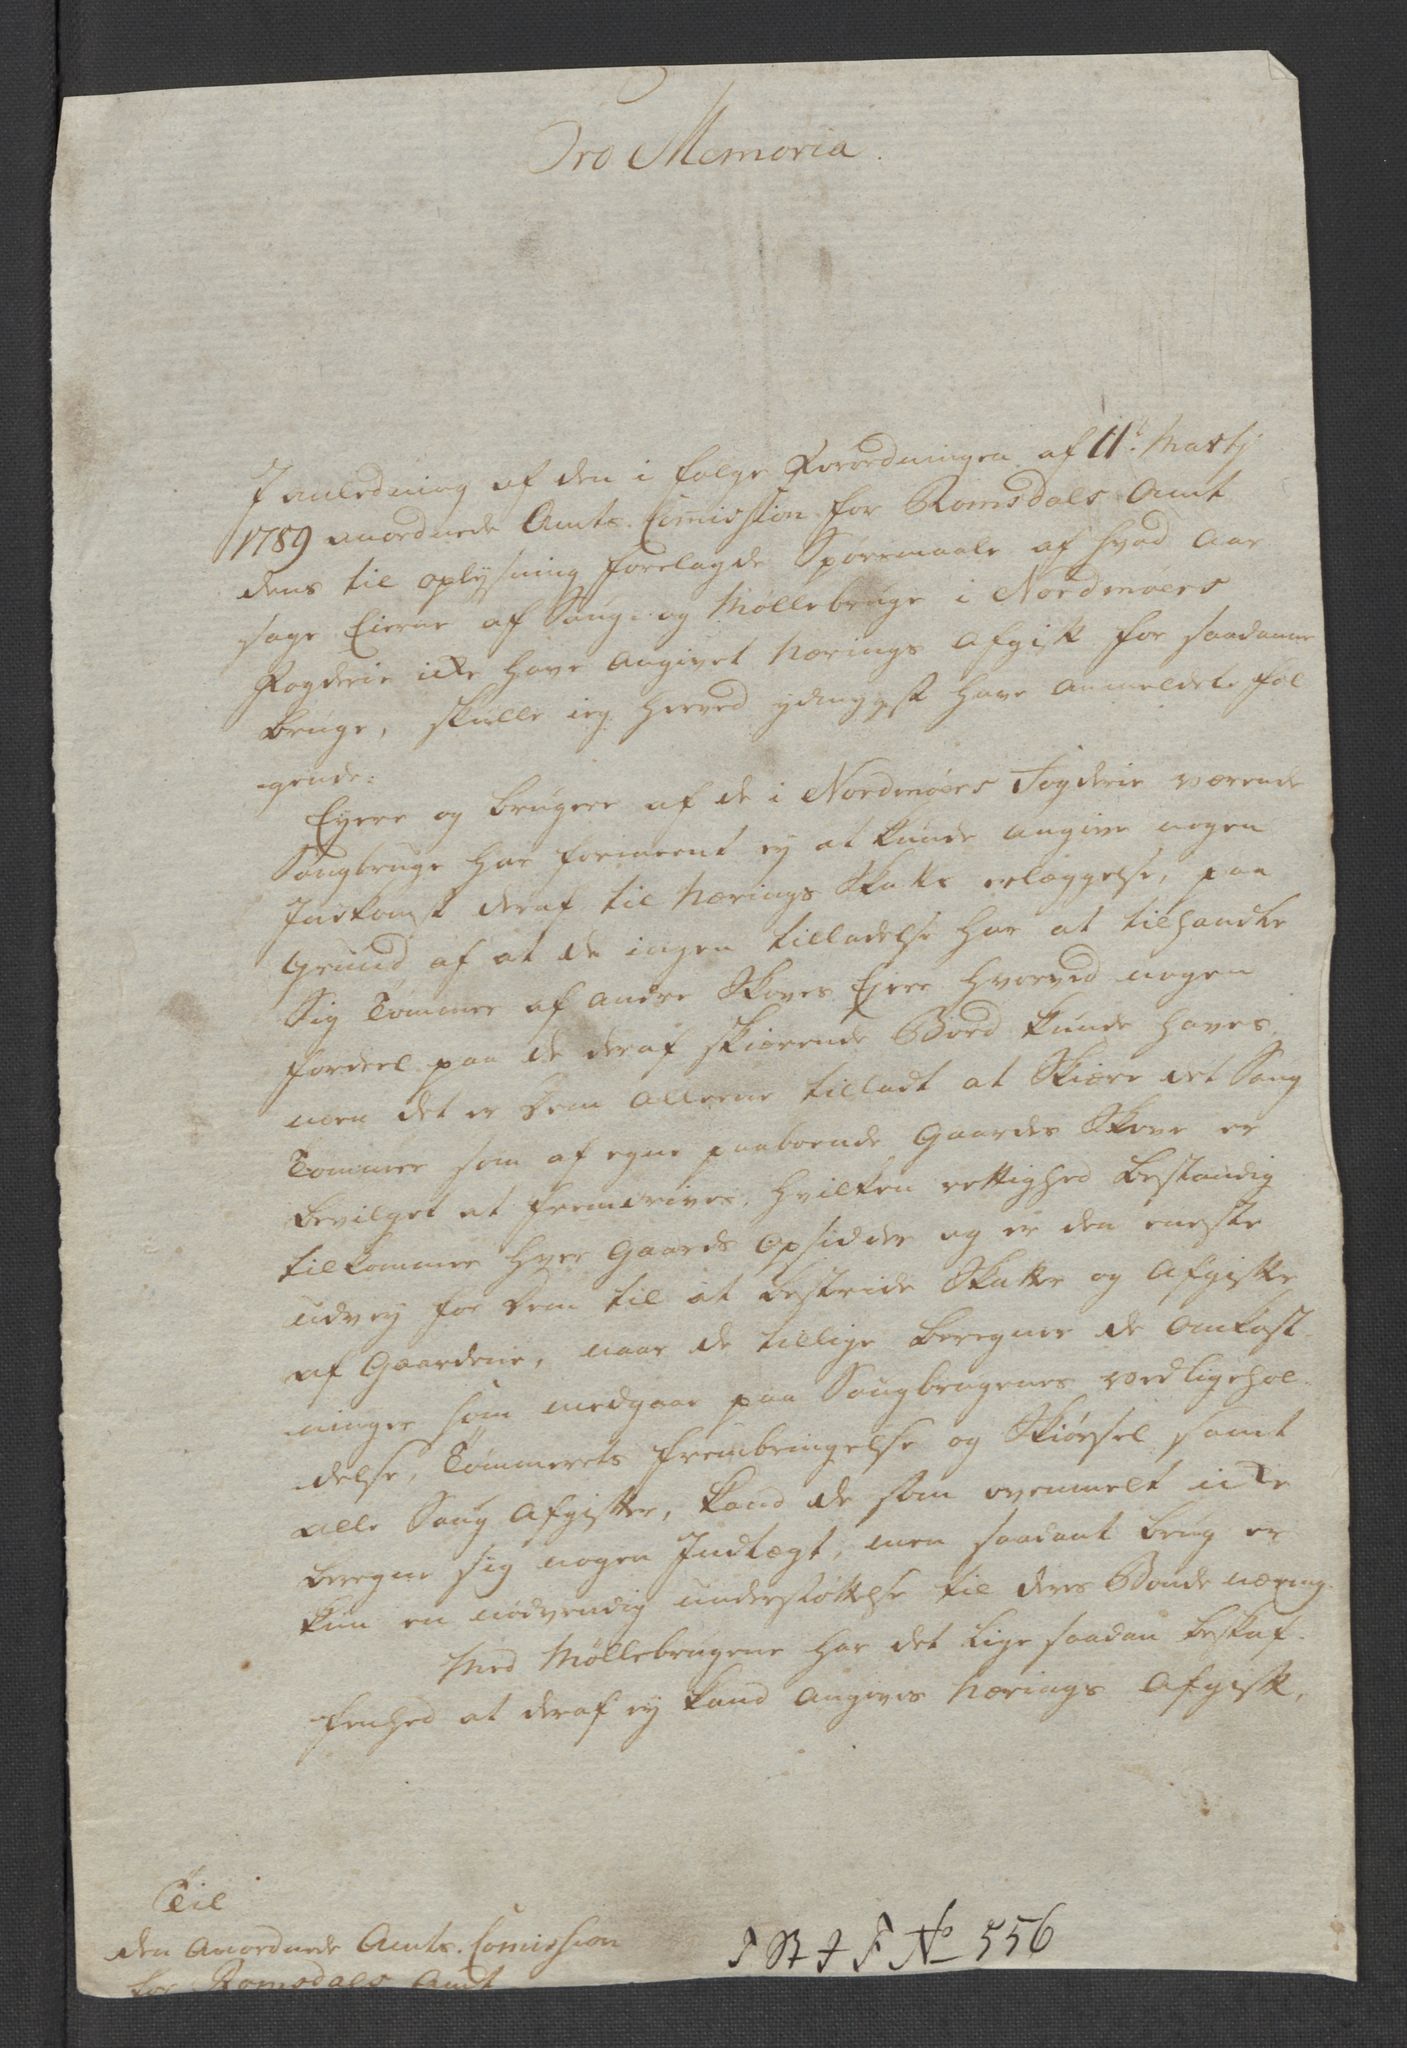 Pro Memoria.
I anledning af den i følge Forordningen af 11te Martij
1789 anordnede Amts Comission for Romsdals Amt
dens til oplysning forelagde Spørsmaale af hvad Aar
sage Eierne af Saug- og Møllebruge i Nordmøers
Fogderie icke have angivet Nærings Afgift for saadanne
bruge, skulle ieg herved ydmygst have anmeldet føl
gende:
Eyere og brugere af de i Nordmøers Fogderie værende
Saugbruge har formeent ey at kunde angive nogen
Indkomst deraf til Nærings Skatts erlæggelse, paa
Grund af at de ingen tilladelse har at tilhandle
Sig Tømmer af andre Skoves Ejere hvorved nogen
fordeel paa de deraf skiærende Bord kunde haves.
men det er dem alleene tilladt at Skiære det Saug
Tømmer som af egne paaboende Gaardes Skove er
bevilget at fremdrives, hvilken rettighed bestandig
tilkommer hver Gaards Opsidder og er den eneste
udvey for dem til at bestride Skatter og Afgifter
af Gaardene, naar de tillige beregner de Omkost-
ninger som medgaar paa Saugbrugenes vedligehol-
delse, Tømmerets frembringelse og Skiørsel samt
alle Saug Afgifter, kand de som ovenmelt icke
beregne sig nogen Indtægt, men saadant brug er
kun en nødvendig understøttelse til deres Bonde næring.
Med Møllebrugene har det lige saadan beskaf-
fenhed at deraf ey kand angives Nærings Afgift,
Til
den anordnede Amts Comission
for Romsdals Amt
F No 556